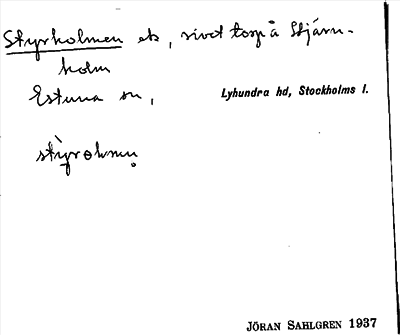 Styrholmen ek, rivet torp å Stjärn-
holm
Estuna sn,
Lyhundra hd, Stockholms l.
JÖRAN SAHLGREN 1937